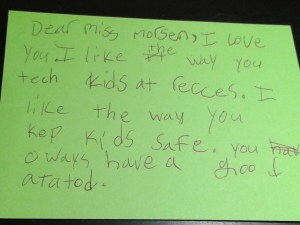 Dear miss morsen, I love
you. I like the way you
tech kids at recces. I
like the way you
kep kids safe. you
oways have a good
atatod.